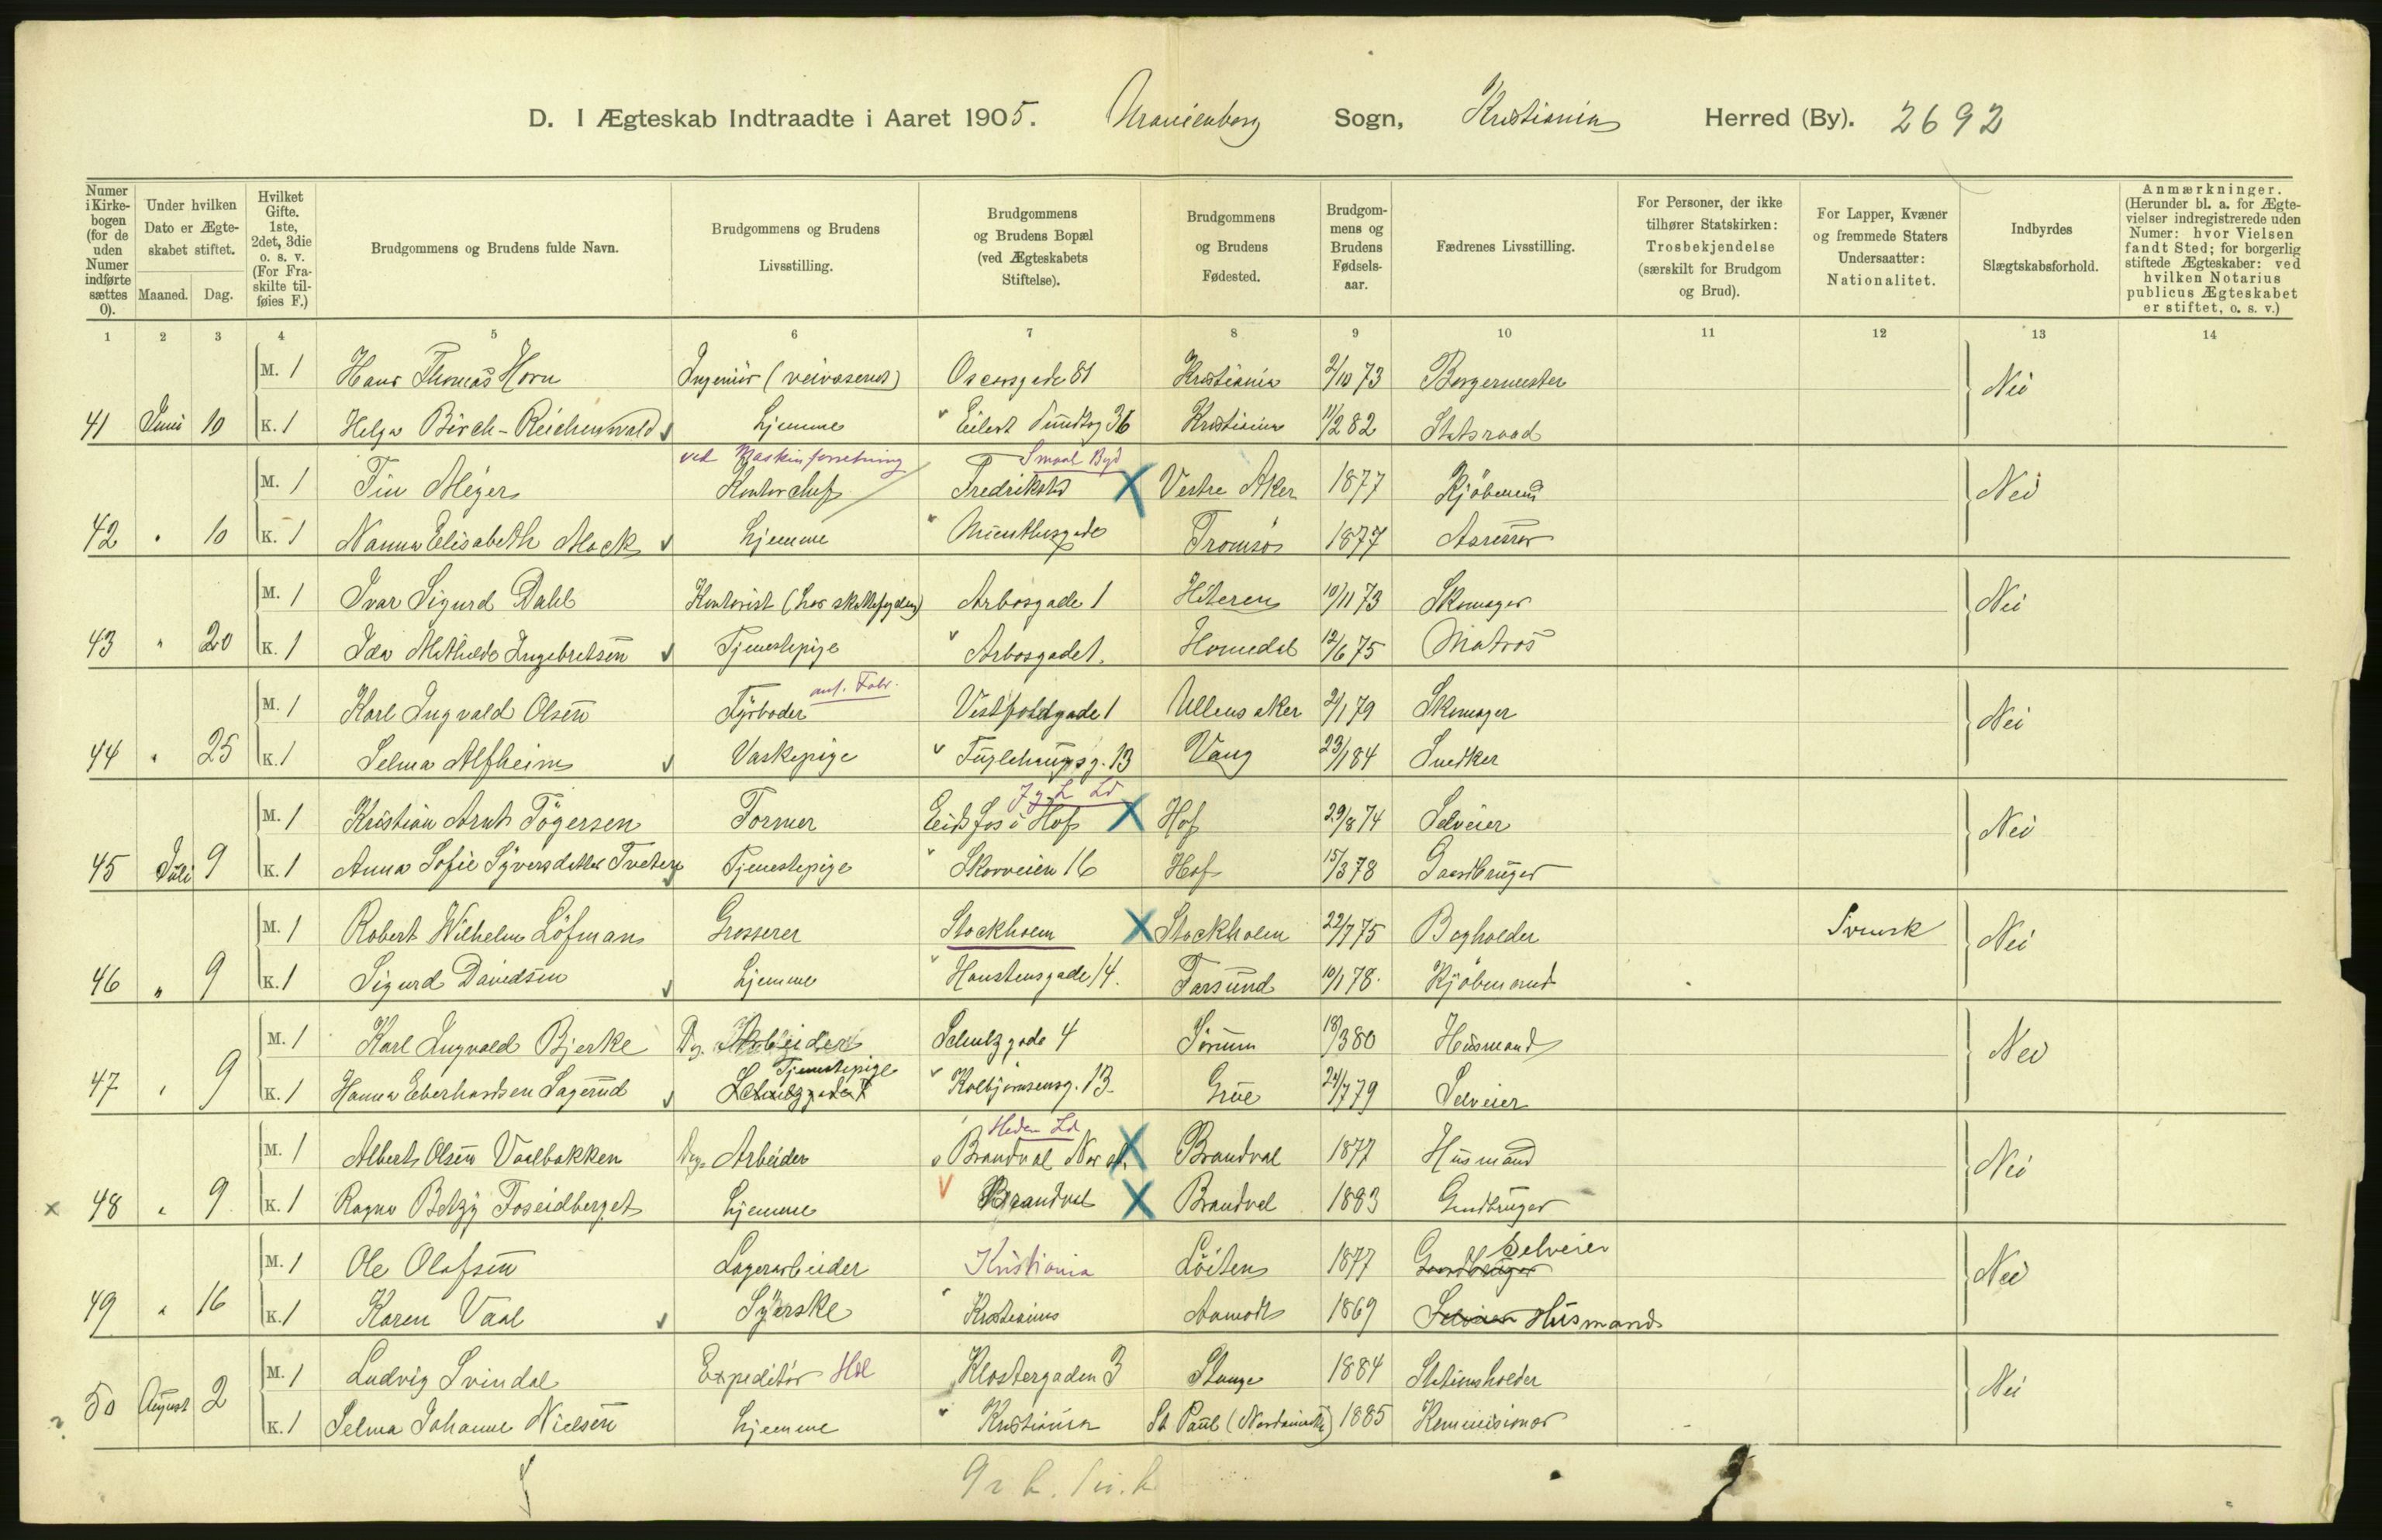 D. I Ægteskab Indtraadte i Aaret 1905. Uranienborg Sogn, Kristiania Herred (By). 2692
Numer i Kirkebogen (for de uden Numer indførte sættes 0). Under hvilken Dato er Ægteskabet stiftet. Maaned. Dag. Hvilket Gifte. 1ste, 2det, 3die o. s. v. (For Fraskilte tilføies F.) Brudgommens og Brudens fulde Navn. Brudgommens og Brudens Livsstilling. Brudgommens og Brudens Bopæl (ved Ægteskabets Stiftelse). Brudgommens og Brudens Fødested. Brudgommens og Brudens Fødselsaar. Fædrenes Livsstilling. For Personer, der ikke tilhører Statskirken: Trosbekjendelse (særskilt for Brudgom og Brud). For Lapper, Kvæner og fremmede Staters Undersaatter: Nationalitet. Indbyrdes Slægtskabsforhold. Anmærkninger. (Herunder bl. a. for Ægtevielser indregistrerede uden Numer: hvor Vielsen fandt Sted; for borgerlig stiftede Ægteskaber: ved hvilken Notarius publicus Ægteskabet er stiftet, o. s. v.)
1 2 3 4 5 6 7 8 9 10 11 12 13 14
M. 1 Hans Thomas Horn Ingeniör (veivæsenet) Oscarsgade 81 Kristiania 2/10 73 Borgermester Nei
41 Juni 10 K. 1 Helga Birch-Reichenwald Hjemme Eilert Sundtsg 36 Kristiania 11/2 82 Statsraad
ved Maskinforretning Smaal Byd
M. 1 Finn Meÿer Kontorchef Fredrikstad Vestre Aker 1877 Kjöbmand Nei
42 " 10 K. 1 Nanna Elisabeth Mack Hjemme Munthesgade Tromsö 1877 Assessor
M. 1 Ivar Sigurd Dahl Kontorist (hos skattefogden) Arbosgade 1 Hiteren 10/11 73 Skomager Nei
43 " 20 K. 1 Ida Mathilde Ingebretsen Tjenestepige Arbosgade 1. Homedal 12/6 75 Matros
ant. Fabr.
M. 1 Karl Ingvald Olsen Fyrböder Vestfoldgade 1 Ullensaker 2/1 79 Skomager Nei
44 " 25 K. 1 Selma Alfheim Vaskepige Fuglehaugsg. 13 Vang 23/1 84 Snedker
J g L Ld
M. 1 Kristian Arnt Tögersen Former Eidsfos i Hof Hof 29/8 74 Selveier Nei
45 Juli 9 K. 1 Anna Sofie Syversdatter Tveten Tjenestepige Skovveien 16 Hof 15/3 78 Gaardbruger
M. 1 Robert Wilhelm Löfman Grosserer Stockholm Stockholm 22/7 75 Bogholder Svensk Nei
46 " 9 K. 1 Sigurd Davidsen Hjemme Hanstensgade 14. Farsund 10/1 78. Kjöbmand
M. 1 Karl Ingvald Bjerke Dag. Arbeider Schulzgade 4 Sörum 18/3 80 Husmand Nei
Tjenestepige
47 " 9 K. 1 Hanna Eberhardsen Sagerud Schulzgade 4 Kolbjörnsensg. 13. Grue 24/7 79 Selveier
Hedm Ld
M. 1 Albert Olsen Vaalbakken Dag. Arbeider Brandval Brandval 1877 Husmand Nei
48 " 9 K. 1 Ragna Betzy Foseidberget Hjemme Brandval Brandval 1883 Gaardbruger
Selveier
M. 1 Ole Olafsen Lagerarbeider Kristiania Löiten 1877 Gaardbruger Nei
49 " 16 K. 1 Karen Vaal Syerske Kristiania Aamodt 1869 Selveier Husmand
M. 1 Ludvig Svindal Expeditör Hdl Klostergaden 3 Stange 1884 Stationsholder Nei
50 August 2 K. 1 Selma Johanne Nielsen Hjemme Kristiania St Paul (Nordamerika) 1885 Kommissionær